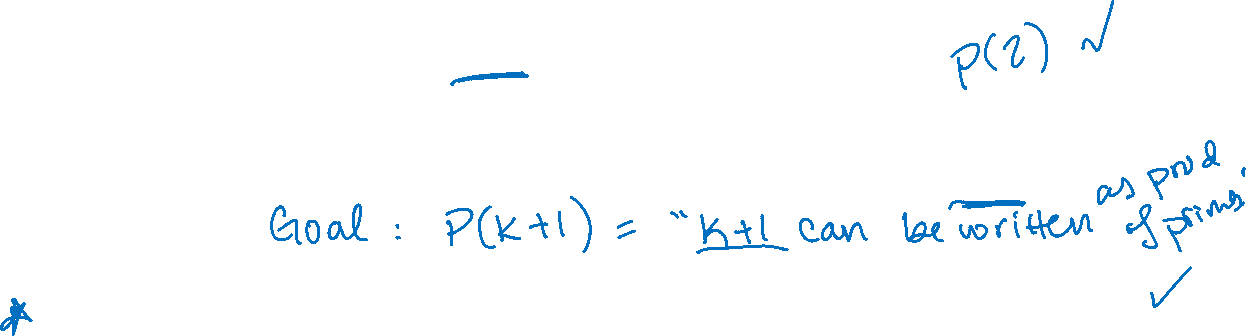 P(2) ✓
Goal : P(K+1) = "K+1 can be written as prod of primes"
✓
*